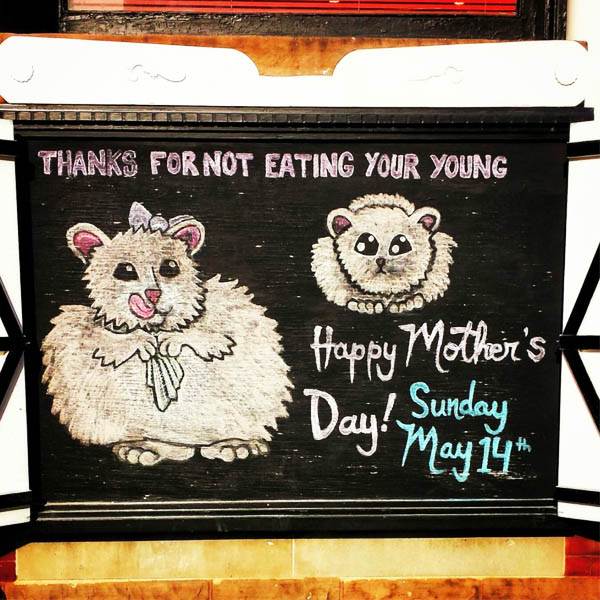 THANKS FOR NOT EATING YOUR YOUNG
Happy Mother's
Day!
Sunday
May 14th